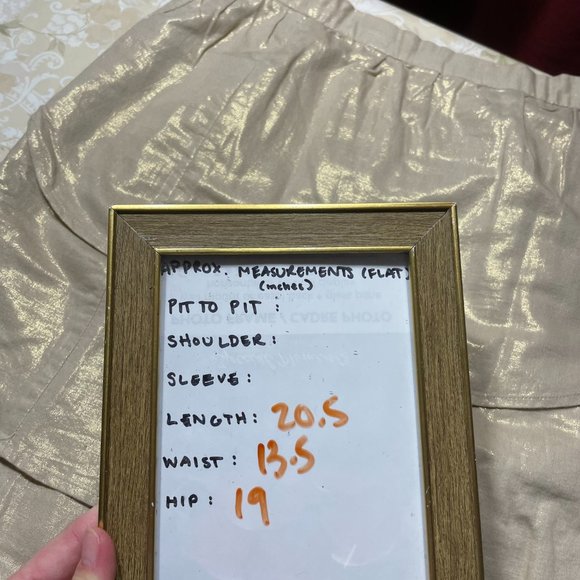 APPROX. MEASUREMENTS (FLAT)
(inches)
PIT TO PIT :
SHOULDER :
SLEEVE :
LENGTH : 20.5
WAIST : 13.5
HIP : 19
PHOTO FRAME / CADRE PHOTO